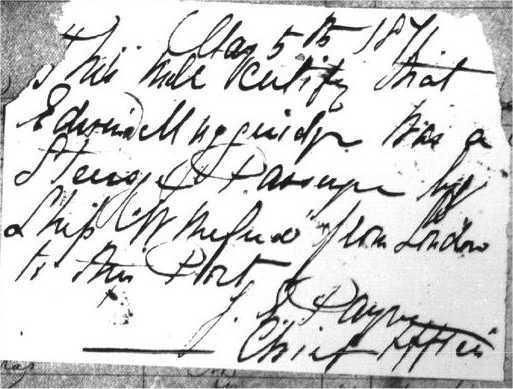 May 5th 1871
This will Certify that
Edwin Muggridge was a
Steerage Passenger by
Ship " " from London
to this Port
Payne
Chief Officer